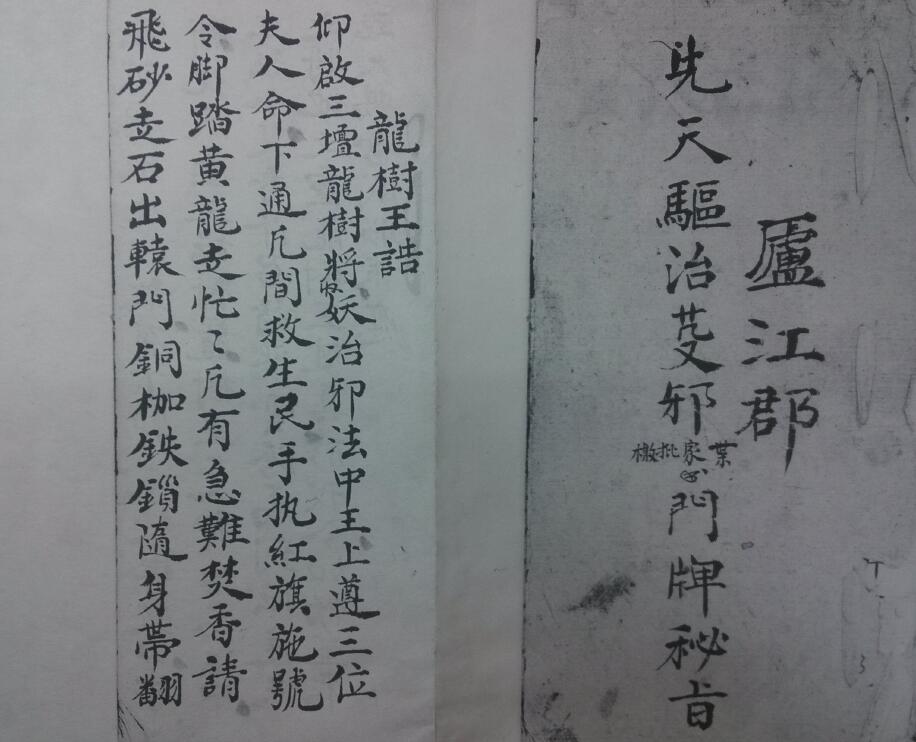 廬江郡
先天驅治芟邪門牌秘旨
家批檄
龍樹王誥
仰啟三壇龍樹將收妖治邪法中王上遵三位
夫人命下通凡間救生民手执紅旗施號
令脚踏黄龍走忙〻凡有急難焚香請
飛砂走石出轅門銅枷鉄鎖隨身帶翻